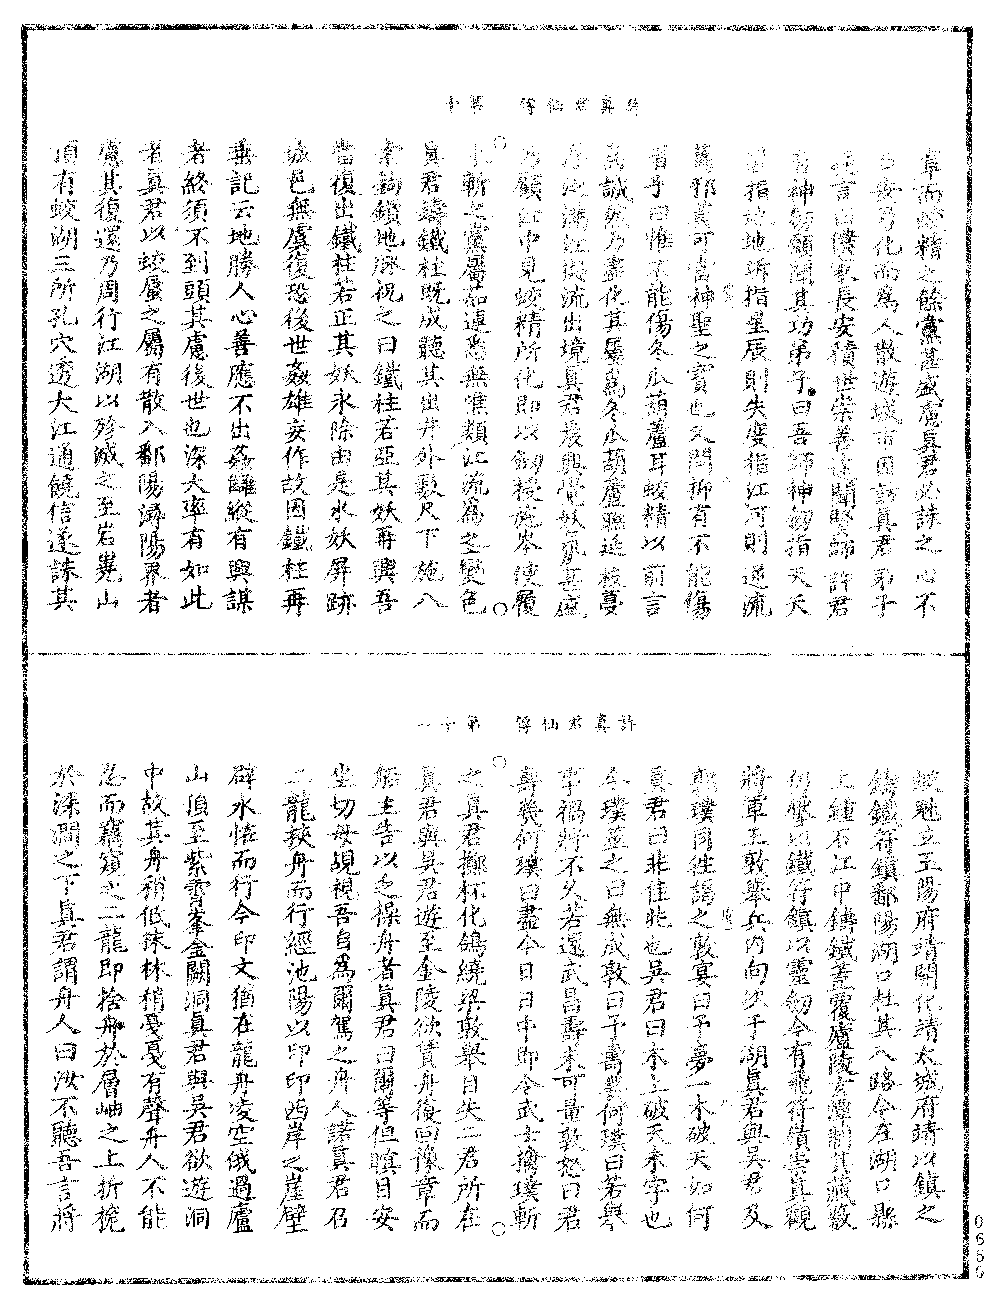 許真君仙傳　第十
韋而蛟精之餘黨甚盛慮真君必誅之心不
自安乃化而為人散遊城市因訪真君弟子
言曰僕家長安積世崇善遠聞賢師許君
有神劒願聞其功弟子曰吾師神劒指天天
裂指地地坼指星辰則失度指江河則逆流
萬邪莫可當神聖之寶也又問抑有不能傷
者乎曰惟不能傷冬瓜葫蘆耳蛟精以為
誠然乃盡化其屬為冬瓜葫蘆聯延枝蔓
浮泛滿江順流出境真君晨興覺妖氣甚盛
乃顧江中見蛟精所化即以劒授施岑使履
水斬之黨屬如連悉無噍類江流為之變色
真君鑄鐵柱既成聽其出井外數尺下施八
索鉤鎖地脉祝之曰鐵柱若亞其妖再興吾
當復出鐵柱若正其妖永除由是水妖屏跡
城邑無虞復恐後世姦雄妄作故因鐵柱再
垂記云地勝人心善應不出姦雄縱有興謀
者終須不到頭其慮後世也深大率有如此
者真君以蛟蜃之屬有散入鄱陽潯陽界者
慮其復還乃周行江湖以殄滅之至岩嶤山
頂有蛟湖三所孔穴透大江通饒信遂誅其
許真君仙傳　第十一
蛟魅立玉陽府靖開化靖太城府靖以鎮之
鑄鐵符鎮鄱陽湖口杜其入路今在湖口縣
上鍾石江中鑄鐵蓋覆廬陵玄潭制其藏藪
仍以鐵符鎮以靈劒今有飛符
將軍王敦舉兵內向次于湖真君與吳君及
郭璞同往謁之敦宴曰予夢一木破天如何
真君曰非佳兆也吳君曰木上破天未字也
令璞筮之曰無成敦曰予壽幾何璞曰若舉
事禍將不久若還武昌壽未可量敦怒曰君
壽幾何璞曰盡今日日中即令武士擒璞斬
之真君擲杯化鴿繞梁敦舉目失二君所在
真君與吳君遊至金陵欲賃舟復回豫章而
船主告以乏操舟者真君曰爾等但瞑目安
坐切毋覘視吾自為爾駕之舟人諾真君召
二龍挾舟而行經池陽以印印西岸之崖壁
辟水怪而行今印文猶在龍舟凌空俄過廬
山頂至紫霄峯金闕洞真君與吳君欲遊洞
中故其舟稍低抹林梢戞戞有聲舟人不能
忍而竊窺之二龍即捨舟於層岫之上折桅
於深澗之下真君謂舟人曰汝不聽吾言將